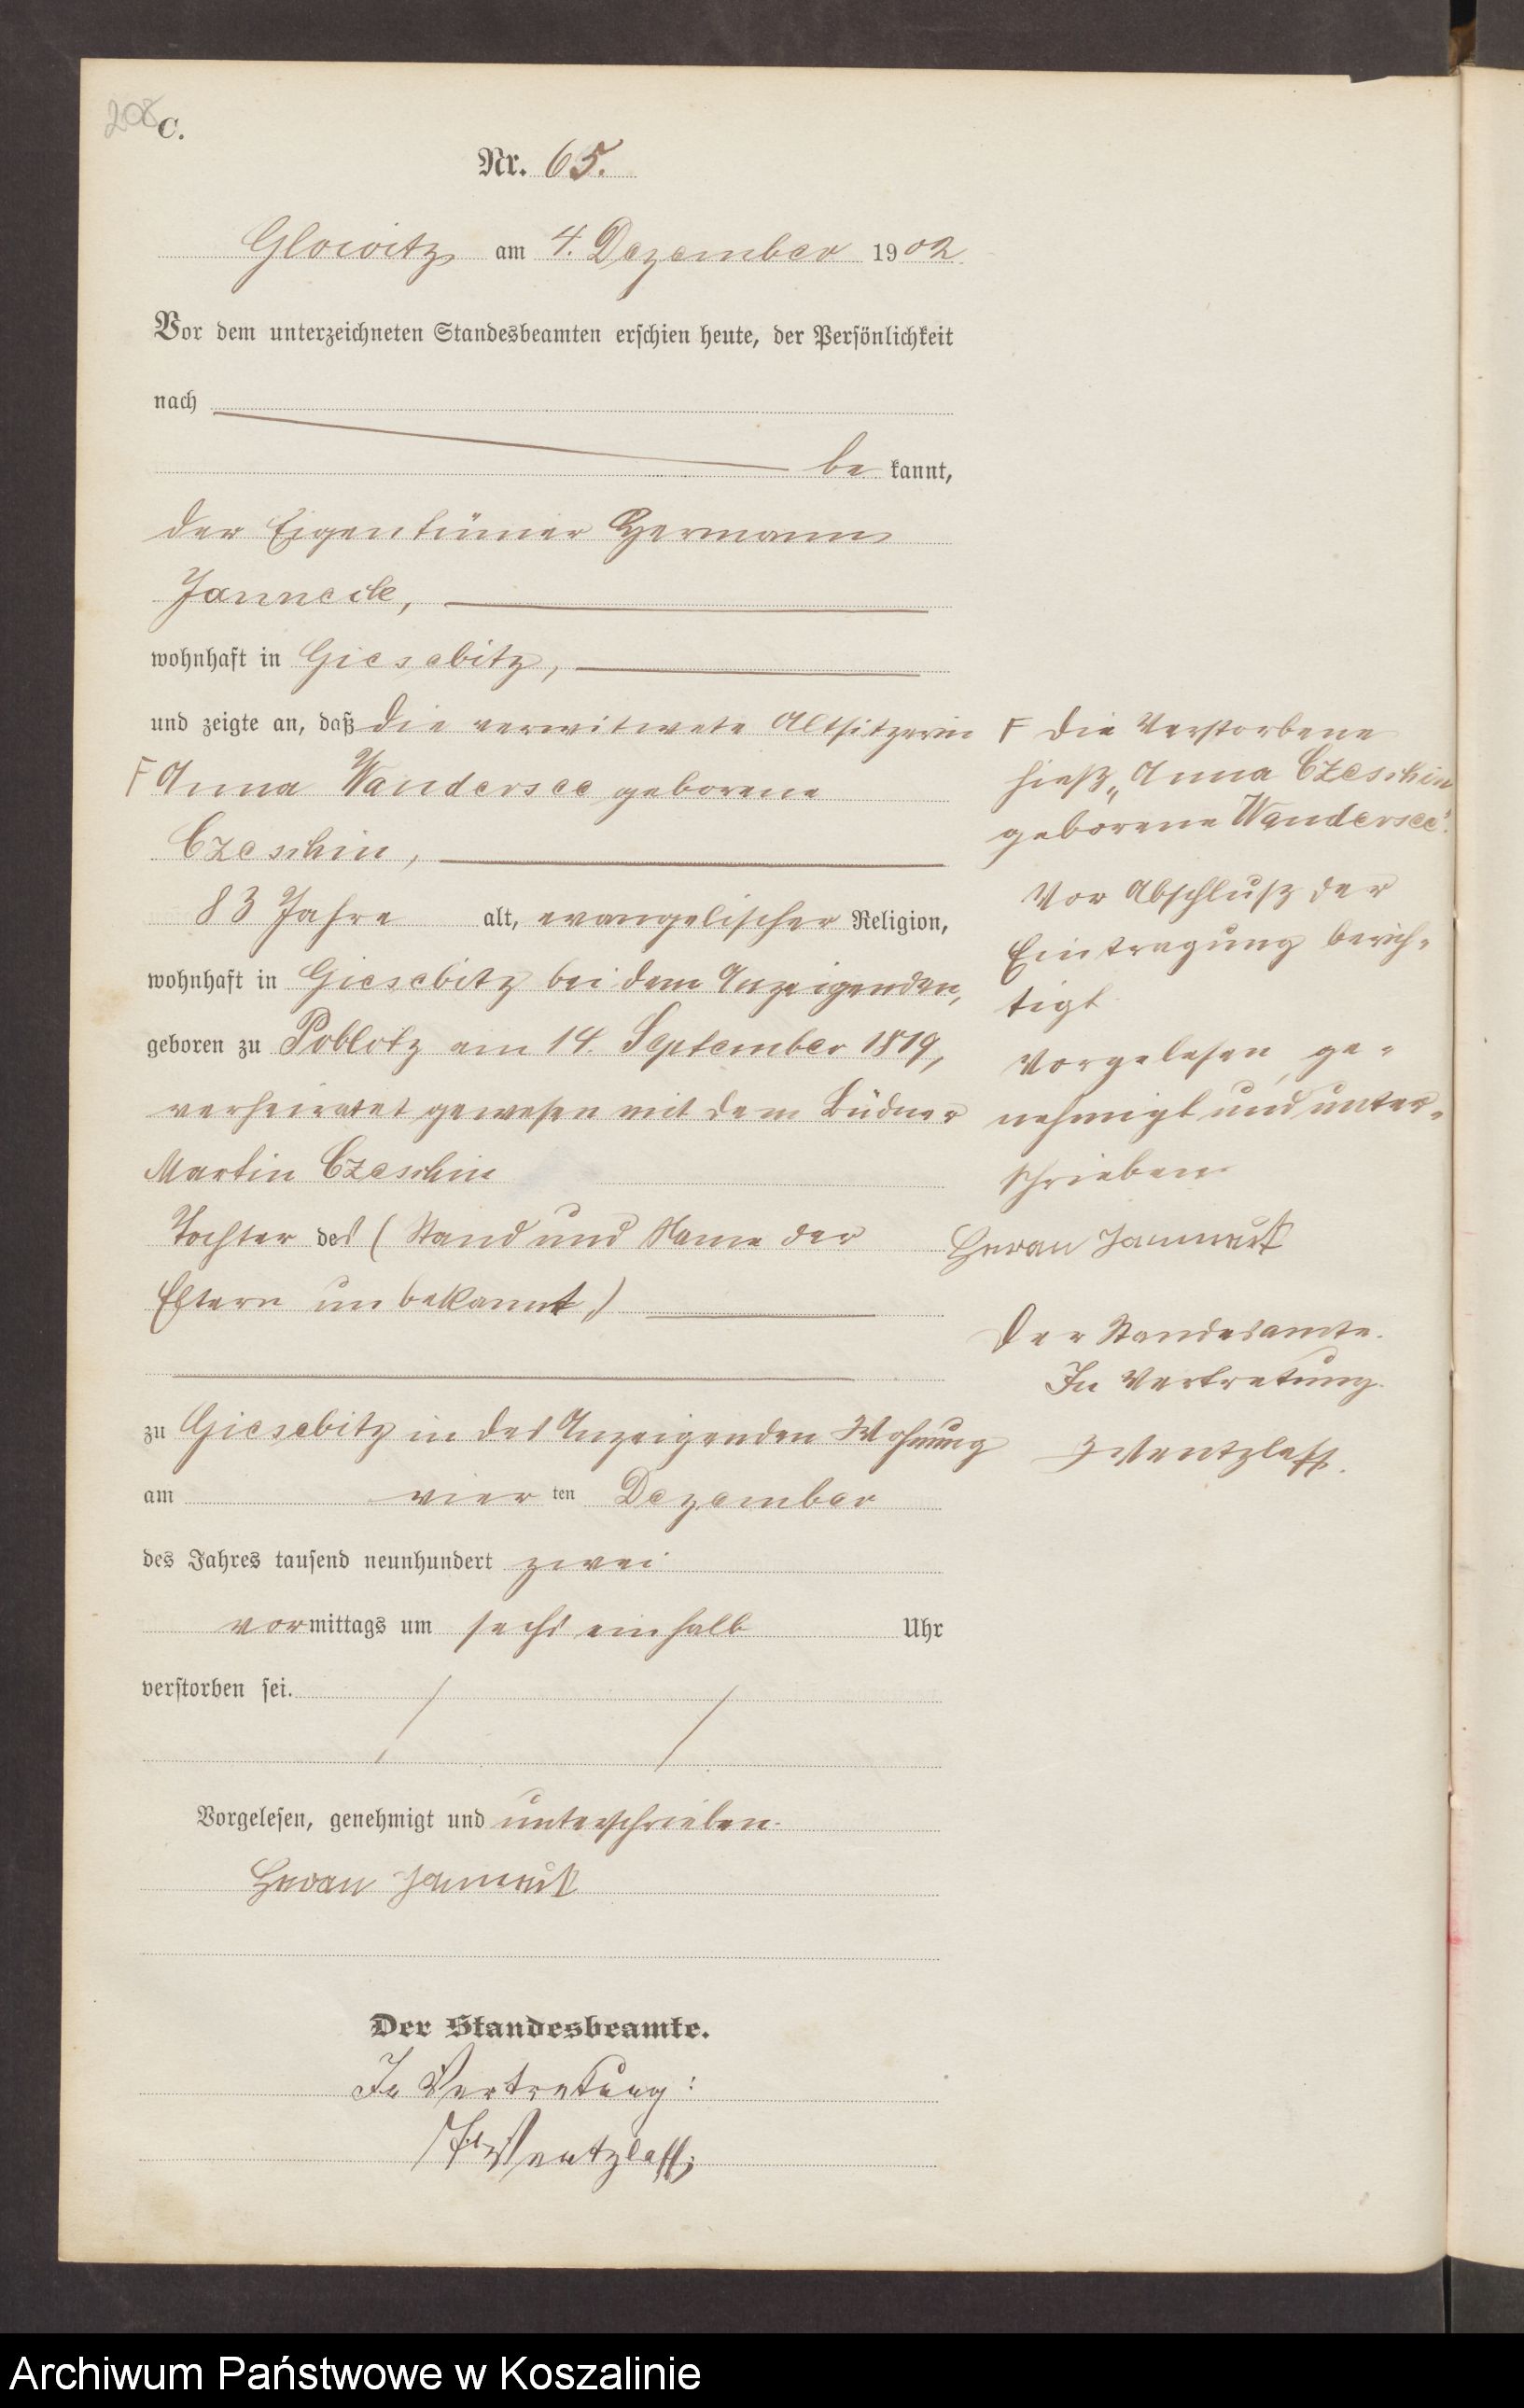 208
C.
Nr. 65.
Glowitz am 4. Dezember 1902
Vor dem unterzeichneten Standesbeamten erschien heute, der Persönlichkeit
nach
be kannt,
der Eigentümer Hermann
Janneck,
wohnhaft in Giesebitz,
und zeigte an, daß die verwitwete Altsitzerin
F Anna Wandersee geborene
Czeschin,
83 Jahre alt, evangelischer Religion,
wohnhaft in Giesebitz bei dem Anzeigenden,
geboren zu Poblotz am 14. September 1819,
verheiratet gewesen mit dem Büdner
Martin Czeschin
Tochter des (Stand und Name der
Eltern unbekannt,)
zu Giesebitz in des Anzeigenden Wohnung
am vier ten Dezember
des Jahres tausend neunhundert zwei
vormittags um sechs einhalb Uhr
verstorben sei.
Vorgelesen, genehmigt und unterschrieben.
Der Standesbeamte.
In Vertretung:
Wentzlaff.
F Die Verstorbene
hieß „Anna Czeschin
geborene Wandersee".
Vor Abschluß der
Eintragung berich-
tigt
Vorgelesen, ge-
nehmigt und unter-
schrieben
Der Standesamte.
In Vertretung.
Wentzlaff.
Archiwum Państwowe w Koszalinie